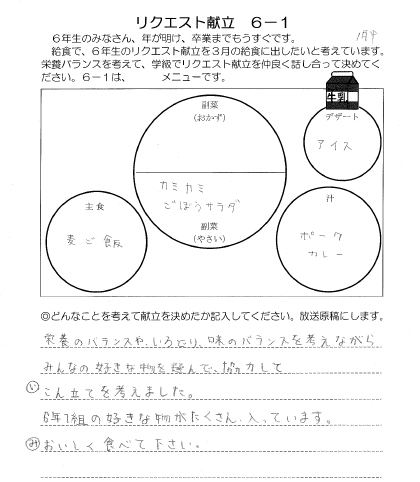 リクエスト献立 6－1
6年生のみなさん、年が明け、卒業までもうすぐです。
1月中
給食で、6年生のリクエスト献立を3月の給食に出したいと考えています。
栄養バランスを考えて、学級でリクエスト献立を仲良く話し合って決めてく
ださい。6－1は、　　　メニューです。
牛乳
副菜
(おかず)
デザート
アイス
カミカミ
ごぼうサラダ
副菜
(やさい)
主食
麦ご飯
汁
ポーク
カレー
◎どんなことを考えて献立を決めたか記入してください。放送原稿にします。
栄養のバランスや、いろどり、味のバランスを考えながら
みんなの好きな物を選んで、協力して
こん立てを考えました。
6年1組の好きな物がたくさん入っています。
み おいしく食べて下さい。